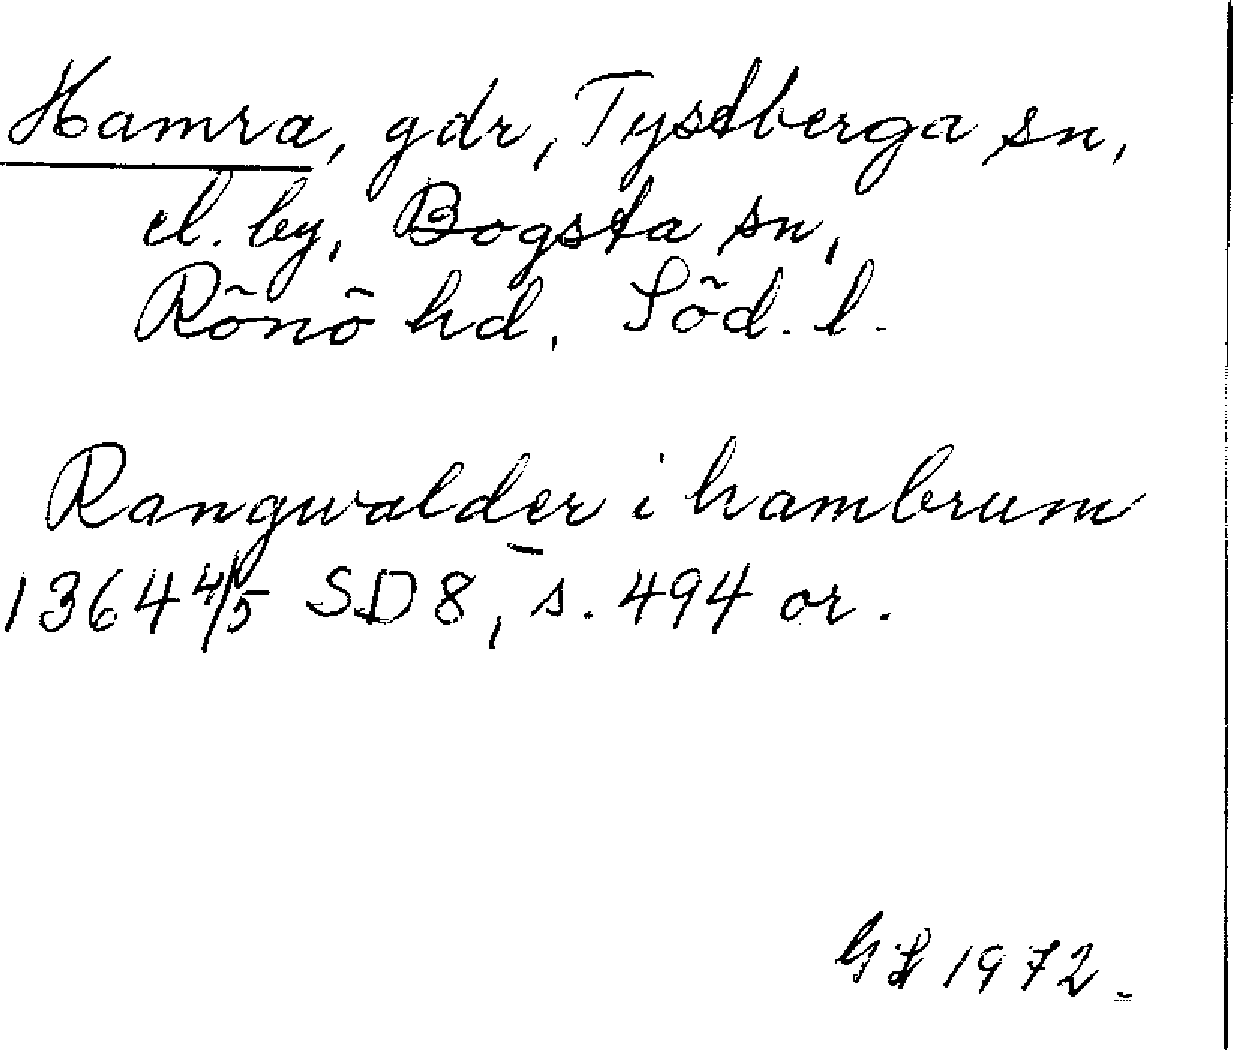 Hamra, gdr, Tystberga sn,
el. by, Bogsta sn,
Rönö hd, Söd. l.
Rangwalder i hambrum
1364 4/5 SD 8, s. 494 or.
1972.